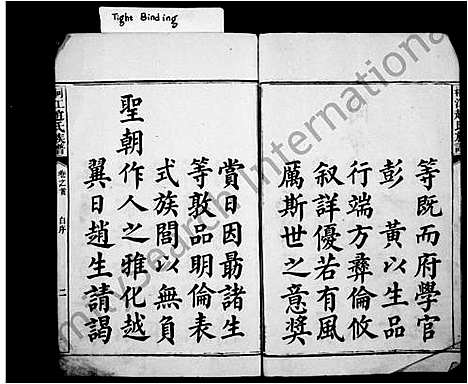 Tight Binding
等既而府學官
彭 黃以生品
行端方彝倫攸
敘詳優若有風
厲斯世之意獎
賞日因勗諸生
等敦品明倫表
式族閭以無負
聖朝作人之雅化越
翼日趙生請謁
江趙氏族譜
卷之首
自序
二
FamilySearch International